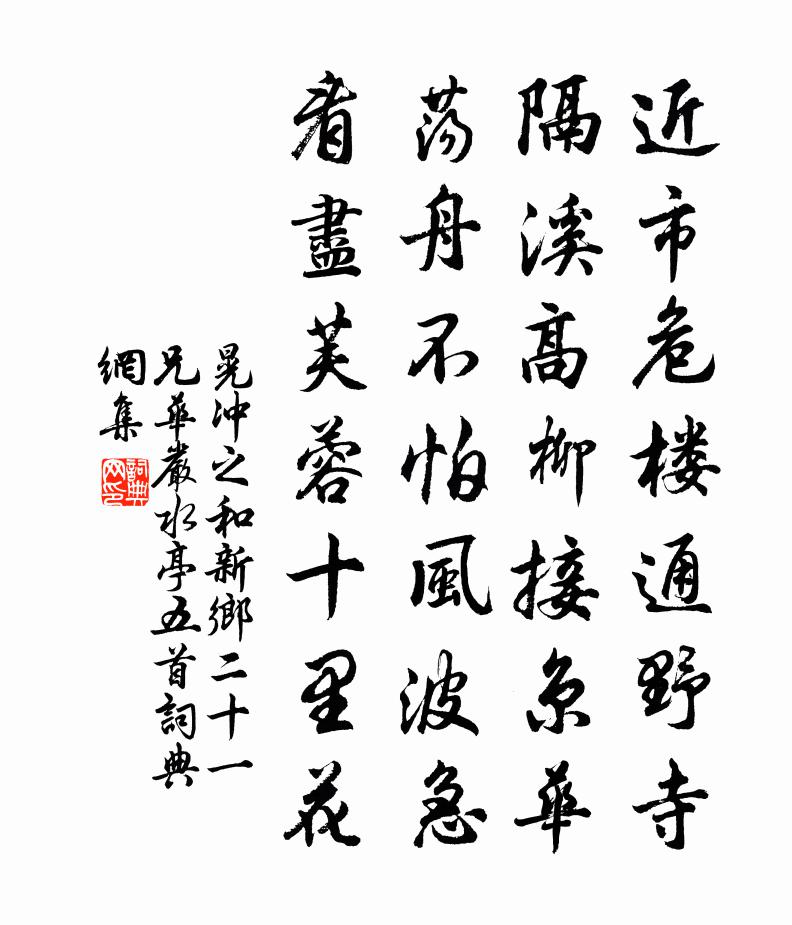 近市危楼通野寺
隔溪高柳接京華
荡舟不怕風波急
看盡芙蓉十里花
晁冲之和新鄉二十一
兄華嚴水亭五首詞典
網集
詞典
网印